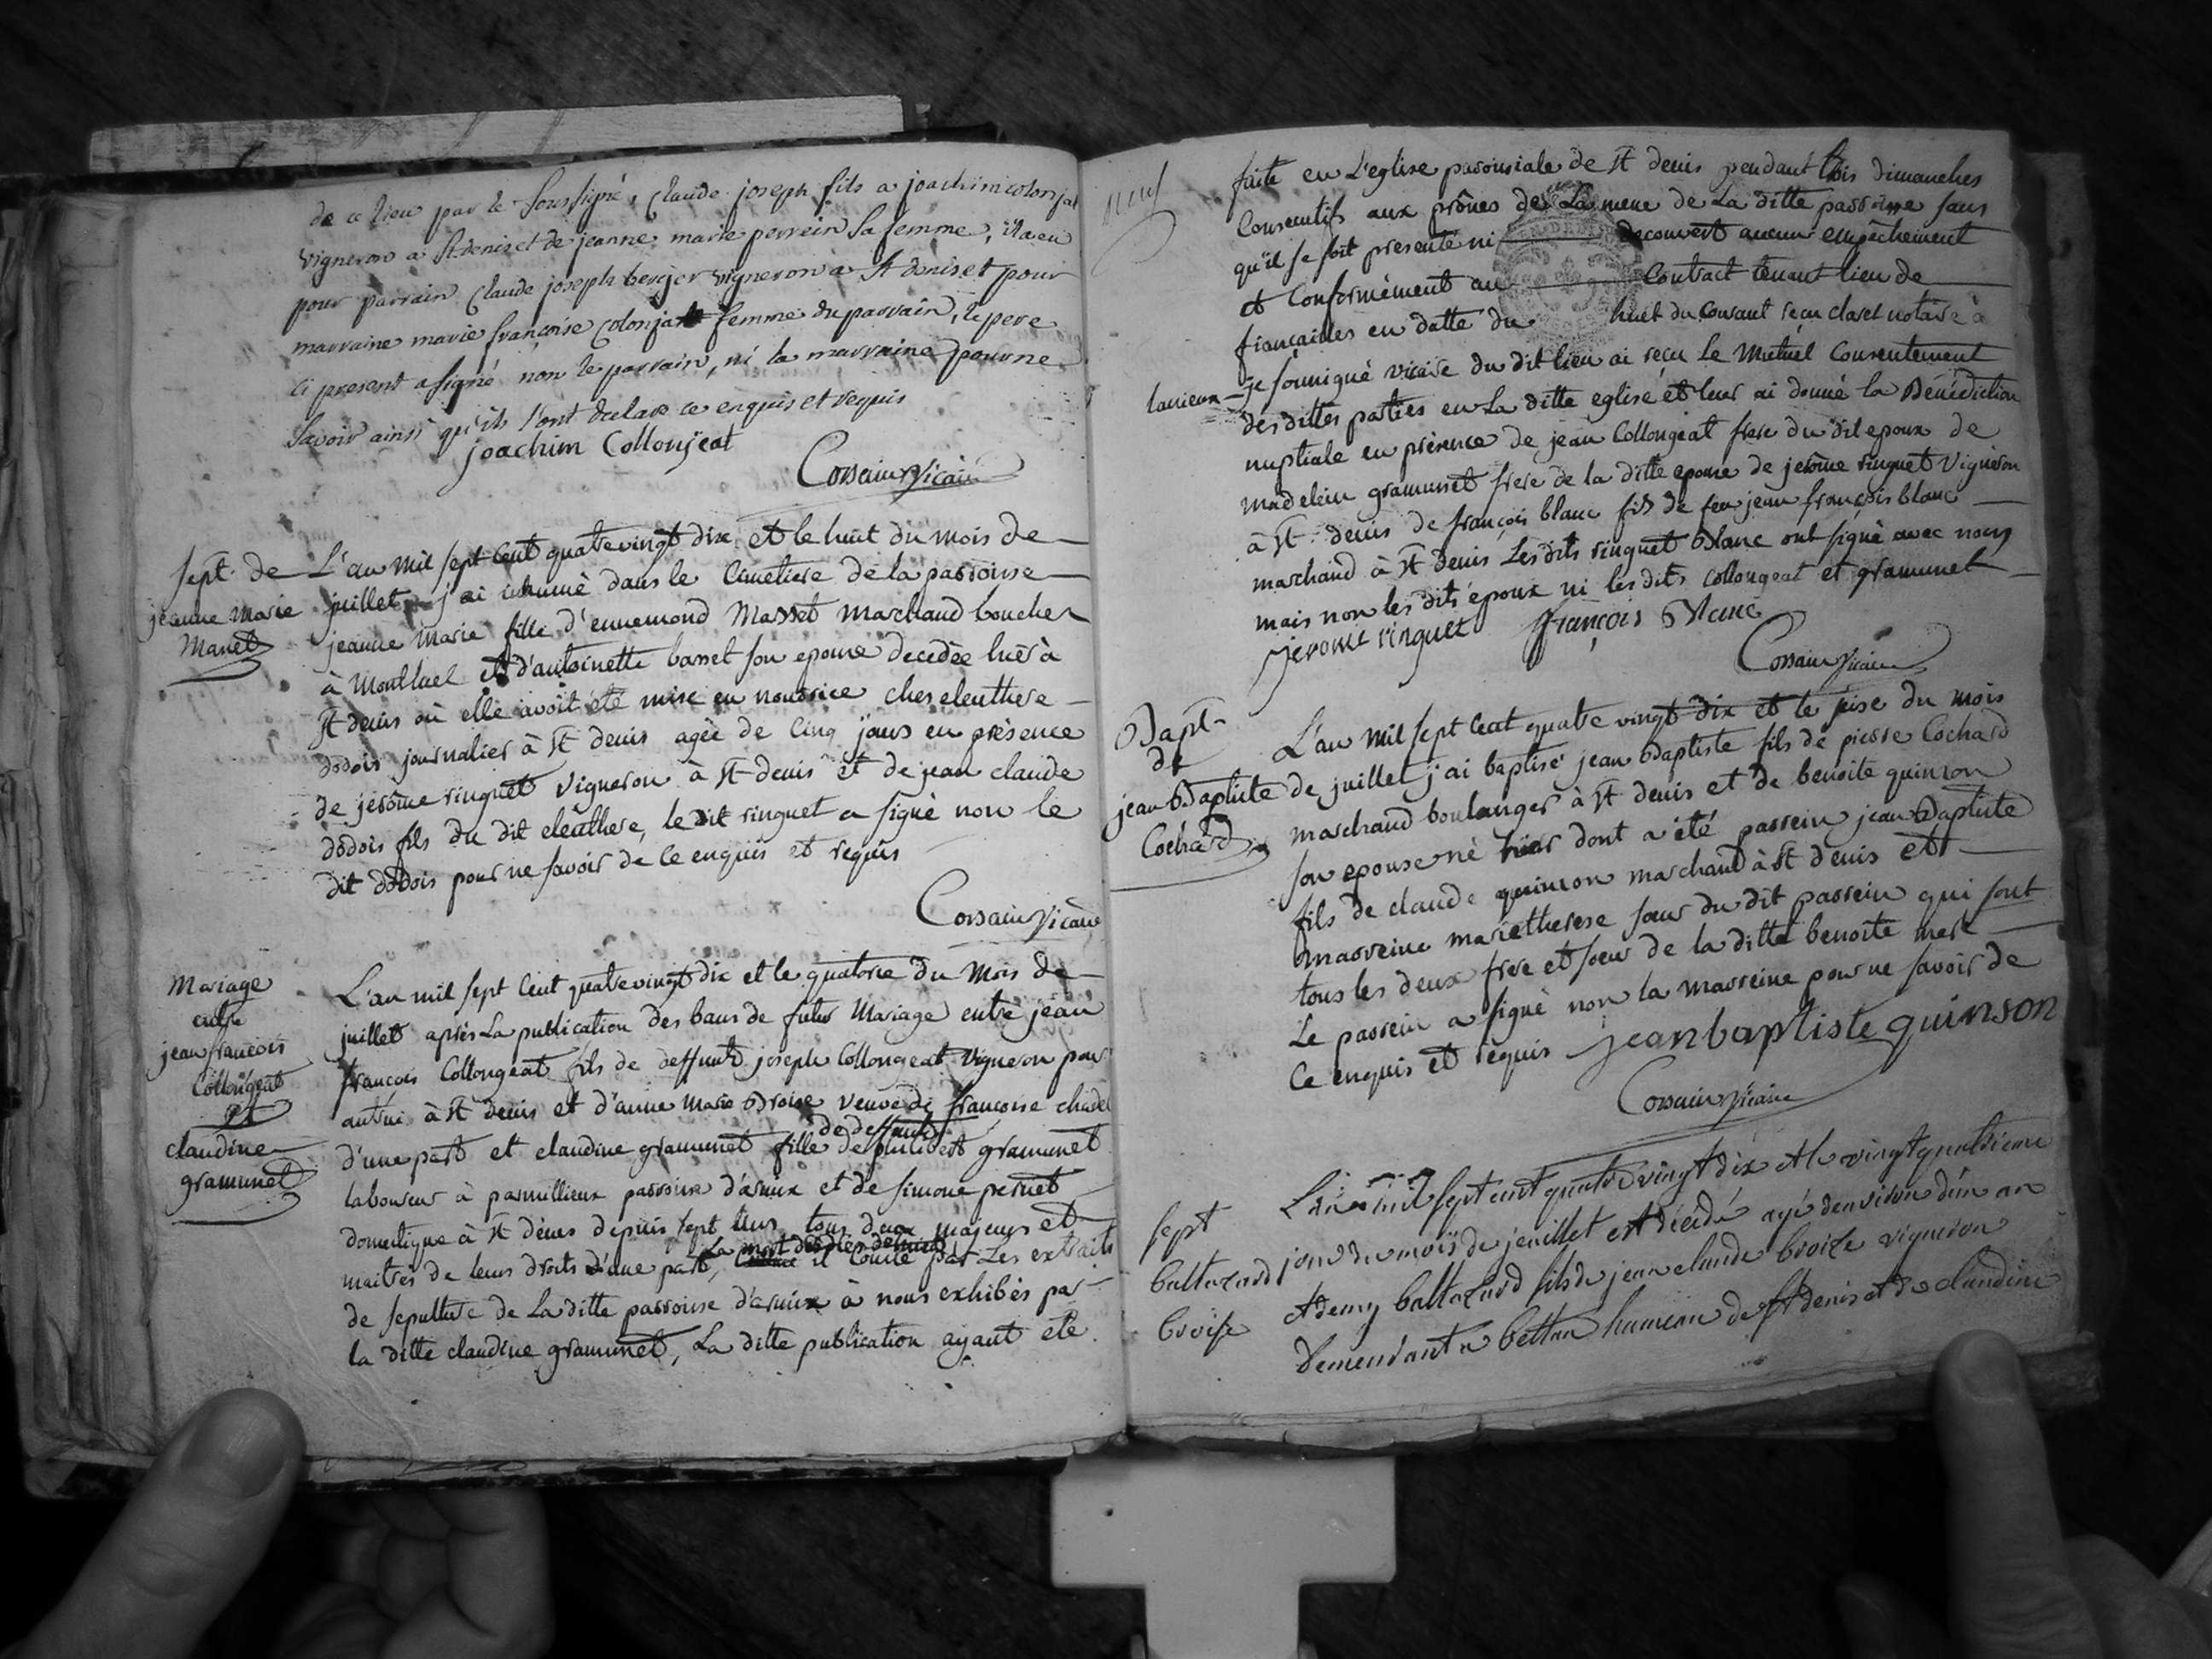 de ce lieu par le soussigné, Claude joseph fils a joachim colonjat
vigneron a St denis et de jeanne marie perrein sa femme, il a eu
pour parrain Claude joseph berger vigneron a St denis et pour
marraine marie françoise Colonjat femme du parrain, le pere
ci present a signé non le parrain, ni la marraine pour ne
savoir ainsi qu'ils l'ont declaré ce enquis et requis
joachim Collonjeat
Corsain vicaire
sept. de
jeanne Marie
Masset
L'an mil sept cent quatrevingt dix et le huit du mois de
juillet j'ai inhumé dans le Cimetiere de la parroisse
jeanne Marie fille d'ennemond Masset marchand boucher
à Montluel et d'antoinette basset son epouse decedée hier à
St denis où elle avoit été mise en nourrice ches eleuthere
dodois journalier à St denis agée de Cinq jours en présence
de jérôme ringuet vigneron à St denis et de jean claude
dodois fils du dit eleuthere, le dit ringuet a signé non le
dit dodois pour ne savoir de ce enquis et requis
Corsain vicaire
Mariage
entre
jean francois
Collongeat
et
claudine
gramunet
L'an mil sept Cent quatrevingt dix et le quatorse du Mois de
juillet après La publication des bans de futur Mariage entre jean
françois Collongeat fils de deffunt joseph Collongeat Vigneron pour
autrui à St denis et d'anne Marie Broise veuve de françoise chadel
d'une part et claudine gramunet fille de philibert gramunet
de deffunt
laboureur à parmillieux parroisse d'arnix et de simone pernet
domestique à St denis depuis sept ans tous deux majeurs et
maitres de leurs droits d'une part, Comme il Conste par Les extraits
La mort desdits defunts
de sepulture de La ditte parroisse d'arnix à nous exhibés par
la ditte claudine gramunet, La ditte publication ayant eté
neuf
faite en L'eglise parroissiale de St denis pendant trois dimanches
Consecutifs aux prônes de La messe de La ditte parroisse sans
qu'il se soit presenté ni decouvert aucun empêchement
et Conformément au Contract tenant lieu de
fiancailles en datte du huit du Courant reçu claret notaire à
lanieux je soussigné vicaire du dit lieu ai reçu Le Mutuel Consentement
des dittes parties en La ditte eglise et leur ai donné la Bénédiction
nuptiale en présence de jean Collongeat frere du dit epoux de
madelein gramunet frere de la ditte epouse de jerôme ringuet Vigneron
à St denis de françois blanc fils de feu jean françois blanc
marchand à St denis Les dits ringuet Blanc ont signé avec nous
mais non les dits époux ni les dits Collongeat et gramunet
jerome ringuet françois Blanc
Corsain vicaire
Bapt.
de
jean Baptiste
Cochard
L'an mil sept Cent quatre vingt dix et le seise du mois
de juillet j'ai baptisé jean Baptiste fils de pierre Cochard
marchand boulanger à St denis et de benoite quinson
son epouse né hier dont a été parrein jean Baptiste
fils de claude quinson marchand à St denis et
marreine marietherese soeur du dit parrein qui sont
tous les deux frere et soeur de la ditte benoite mere
Le parrein a signé non la marreine pour ne savoir de
Ce enquis et requis jean baptiste quinson
Corsain vicaire
sept
baltazard
broise
L'an mil sept cent quatre vingt dix et le vingt quatrieme
jour du mois de jeuillet est décédé agé denviron d'un an
et demy baltazard fils de jean claude broise vigneron
demeurant a bettan hameau de St denis et de claudine